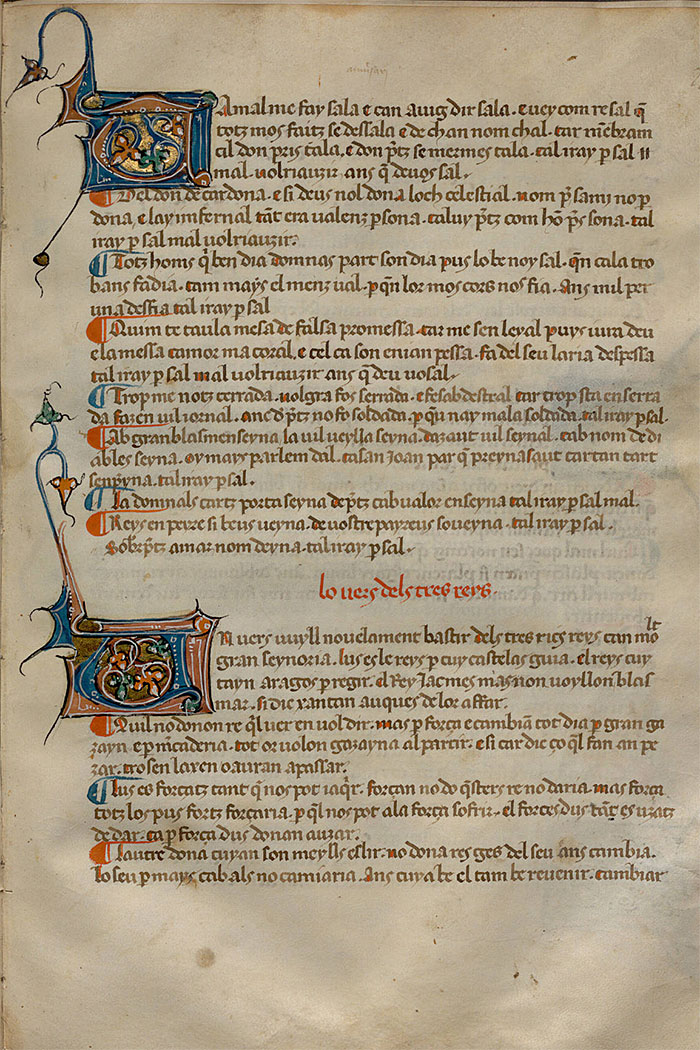 Amal me fay sala e can auig dir sala · e uey com re sal q̄
totz mos faitz se dessala e de chan nom chal · car mēbram
cil don pris tala · e don p̄tz se mermes tala · tal iray p sal
mal · uolriauzir · ans q̄ deuos sal ·
Del don de cardona · e si deus nol dona loch celestial · nom p̄ sami no p
dona · e lay infernal tāt era ualenz psona · taluy p̄tz com hō p̄s sona · tal
iray p sal mal uolriauzir ·
Totz homs q̄ ben dia domnas part son dia pus lo be noy sal · q̄n cala tro
bans fadia · tam mays el menz ual · p q̄n lor mos cors nos fia · Ans mil per
una desfia tal iray p sal
Quim te taula mesa de falsa promessa · car me sen leyal puys iura deu
e la messa camor ma coral · e cel ca son enian pessa · fa del seu laria despessa
tal iray p sal mal uolriauzir ans q̄ deu uosal ·
Trop me notz cerrada · uolgra fos serrada · e fes ab destral car trop sta en serra
da fazen uil iornal · anc d p̄tz no fo soldada · p q̄u nay mala soldada · tal iray p sal ·
Ab gran blasmenseyna la uil ueylla seyna · dazaut uil seynal · cab nom de di
ables seyna · oy mays parlem dal · casan Joan par q̄ preyna saut cartan tart
senp̄yna · tal iray p sal ·
La domnals cartz porta seyna de p̄tz cab ualor enseyna tal iray p sal mal ·
Reys en peyre si beus ueyna · de uostre payreus soueyna · tal iray p sal ·
Sobr p̄tz amar nom deyna · tal iray p sal ·
lo uers dels tres reys
Un uers uuyll nouelament bastir dels tres rics reys can mo lt
gran seynoria · lus es le reys p cuy castelas guia · el reys cuy
tayn aragos p regir · el Rey Jacmes mas non uoyll on blas
mar · si dic xantan auques de lor affar ·
Quil no donon re q̄l uer en uol dir · mas p força e cambiā tot dia p gran ga
zayn e p m̄caderia · tot or uolon gazayna al partir · e si car dic ço q̄l fan an pe
zar · tro sen laxen o auran apassar ·
Lus es forçatz tant q̄ nos pot iaq̄r · forçan no do q̄sters re no daria · mas força
totz los pus fortz forçaria · p q̄l nos pot a la força sofrir · el forces dus tāt es uzatz
de dar · ca p força dus donan auzar ·
Lautre dona cuyan son meylls eslir · no dona res ges del seu ans cambia ·
lo seu p mays cabals no camiaria · Ans cuya be el cam be reuenir · cambiar